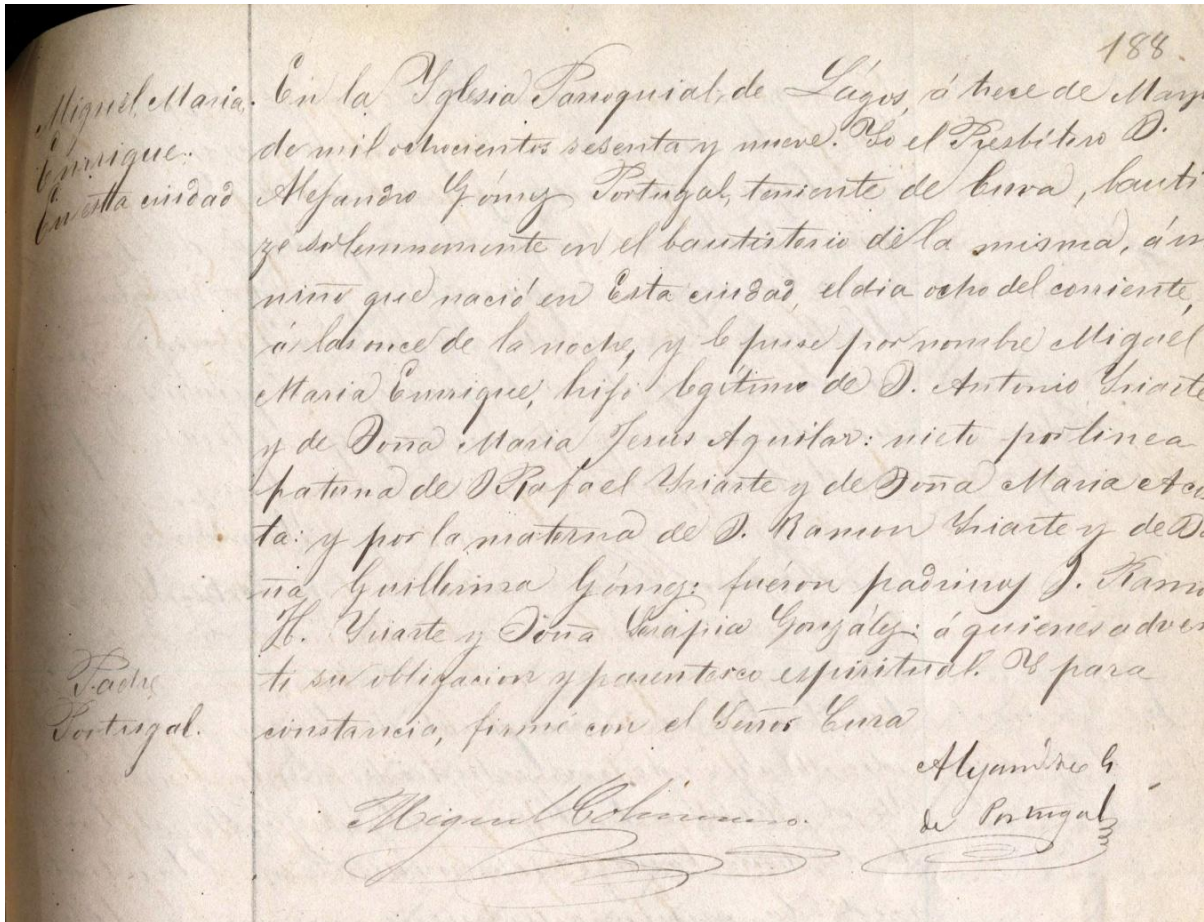 188.
Miguel Maria
Enrrique.
En esta ciudad
En la Yglesia Parroquial, de Lágos, á trece de Mayo
de mil ochocientos sesenta y nueve. Yo el Presbítero D.
Alejandro Gómez Portugal, teniente de Cura, bauti
zé solemnemente en el bautisterio de la misma, á un
niño que nació en Esta ciudad, el dia ocho del corriente,
á las once de la noche, y le puse por nombre Miguel
Maria Enrrique, hijo legítimo de D. Antonio Yriarte
y de Doña Maria Jesus Aguilar: nieto por linea
paterna de D Rafael Yriarte y de Doña Maria Acos
ta: y por la materna de D. Ramon Yriarte y de Do
ña Guillerma Gómez: fuéron padrinos D. Ramon
H. Yriarte y Doña Serapia González: á quienes adver
ti su obligacion y parentesco espiritual. Y para
constancia, firmé con el Señor Cura
Padre
Portugal.
Alejandro G.
de Portugal
Miguel